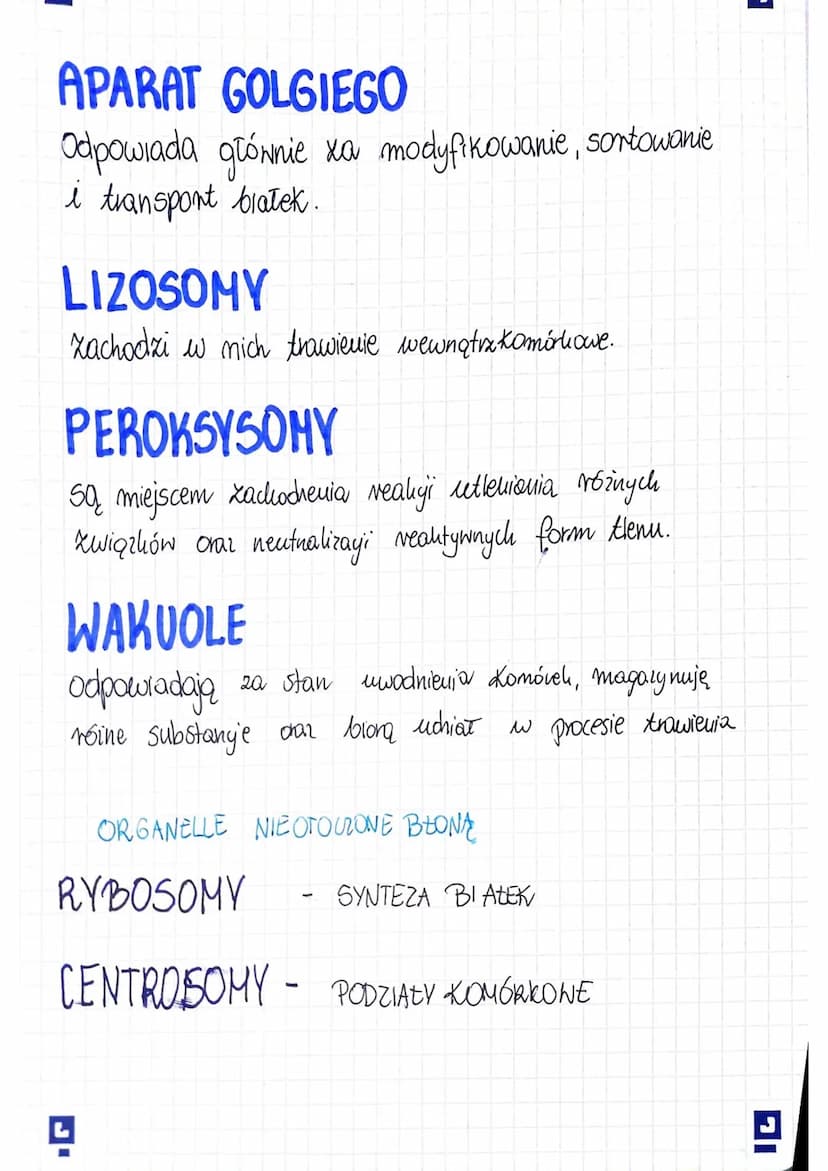 APARAT GOLGIEGO
Odpowiada głównie za modyfikowanie, sortowanie
i transport białek.
LIZOSOMY
Zachodzi w nich trawienie wewnątrzkomórkowe.
PEROKSYSOMY
są miejscem zachodzenia reakcji utleniania różnych
związków oraz neutralizacji reaktywnych form tlenu.
WAKUOLE
odpowiadają za stan uwodnienia komórek, magazynują
różne substancje oraz biorą udział w procesie trawienia
ORGANELLE NIEOTOCZONE BŁONĄ
RYBOSOMY - SYNTEZA BIAŁEK
CENTROSOMY - PODZIAŁY KOMÓRKOWE